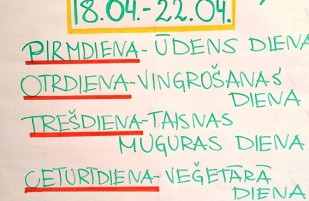 18.04.-22.04.
PIRMDIENA-ŪDENS DIENA
OTRDIENA-VINGROŠANAS
DIENA
TREŠDIENA-TAISNAS
MUGURAS DIENA
CETURTDIENA-VEĢETĀRĀ
DIENA